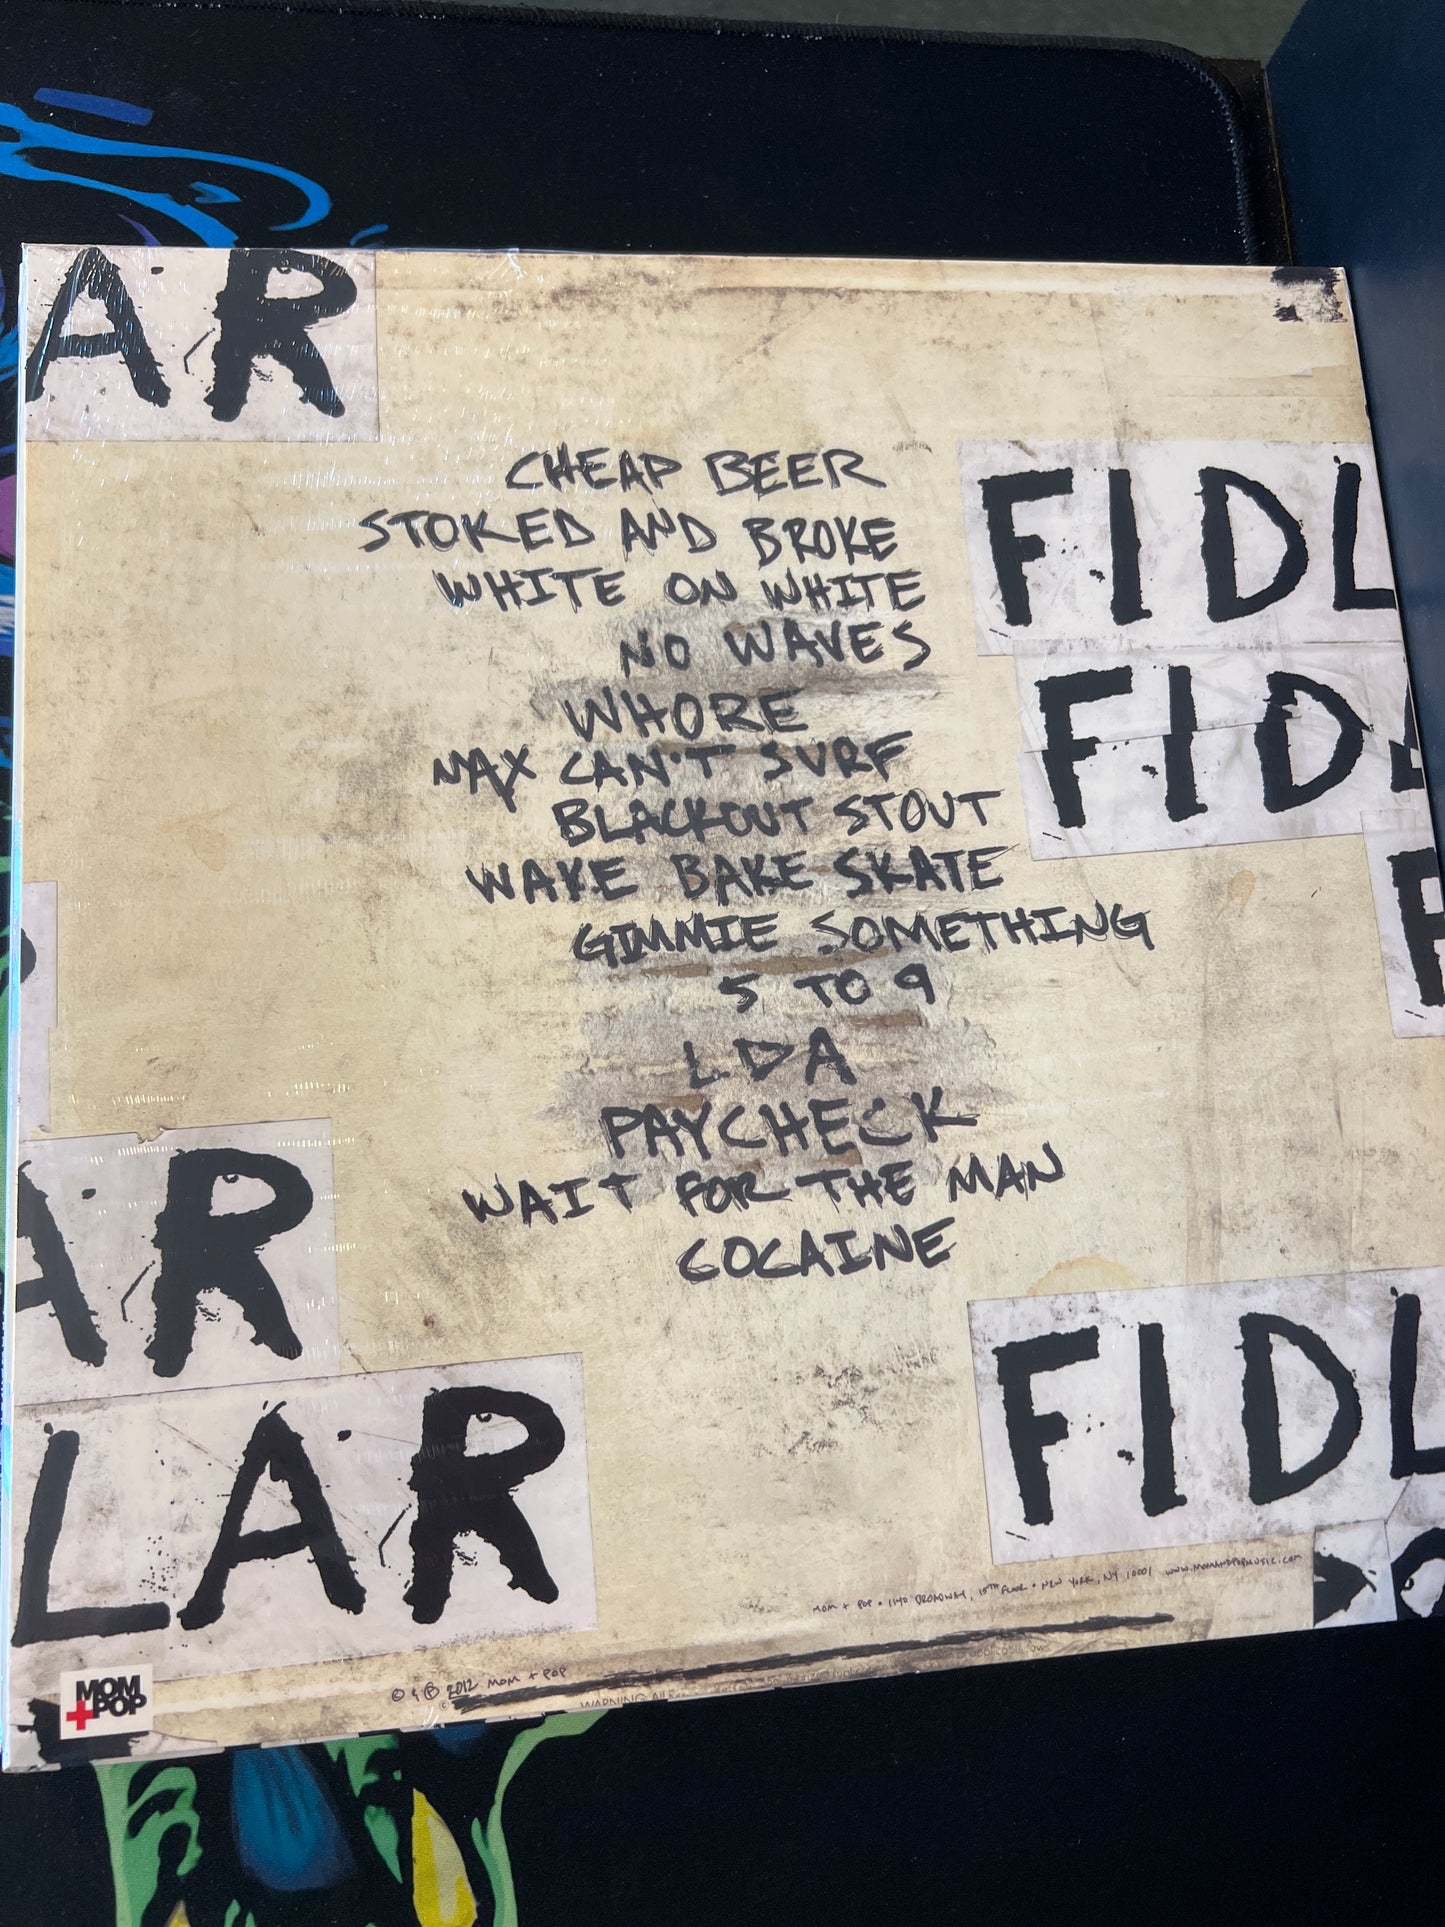 AR
CHEAP BEER
STOKED AND BROKE
WHITE ON WHITE
NO WAVES
WHORE
MAX CAN'T SURF
BLACKOUT STOUT
WAKE BAKE SKATE
GIMMIE SOMETHING
5 TO 9
LDA
PAYCHECK
WAIT FOR THE MAN
COCAINE
FIDL
FID
F
AR
LAR
FIDL
MOM + POP • 1140 BROADWAY, 15TH FLOOR • NEW YORK, NY 10001 WWW.MOMANDPOPMUSIC.COM
© & ℗ 2012 MOM + POP
WARNING: All
MOM
+POP